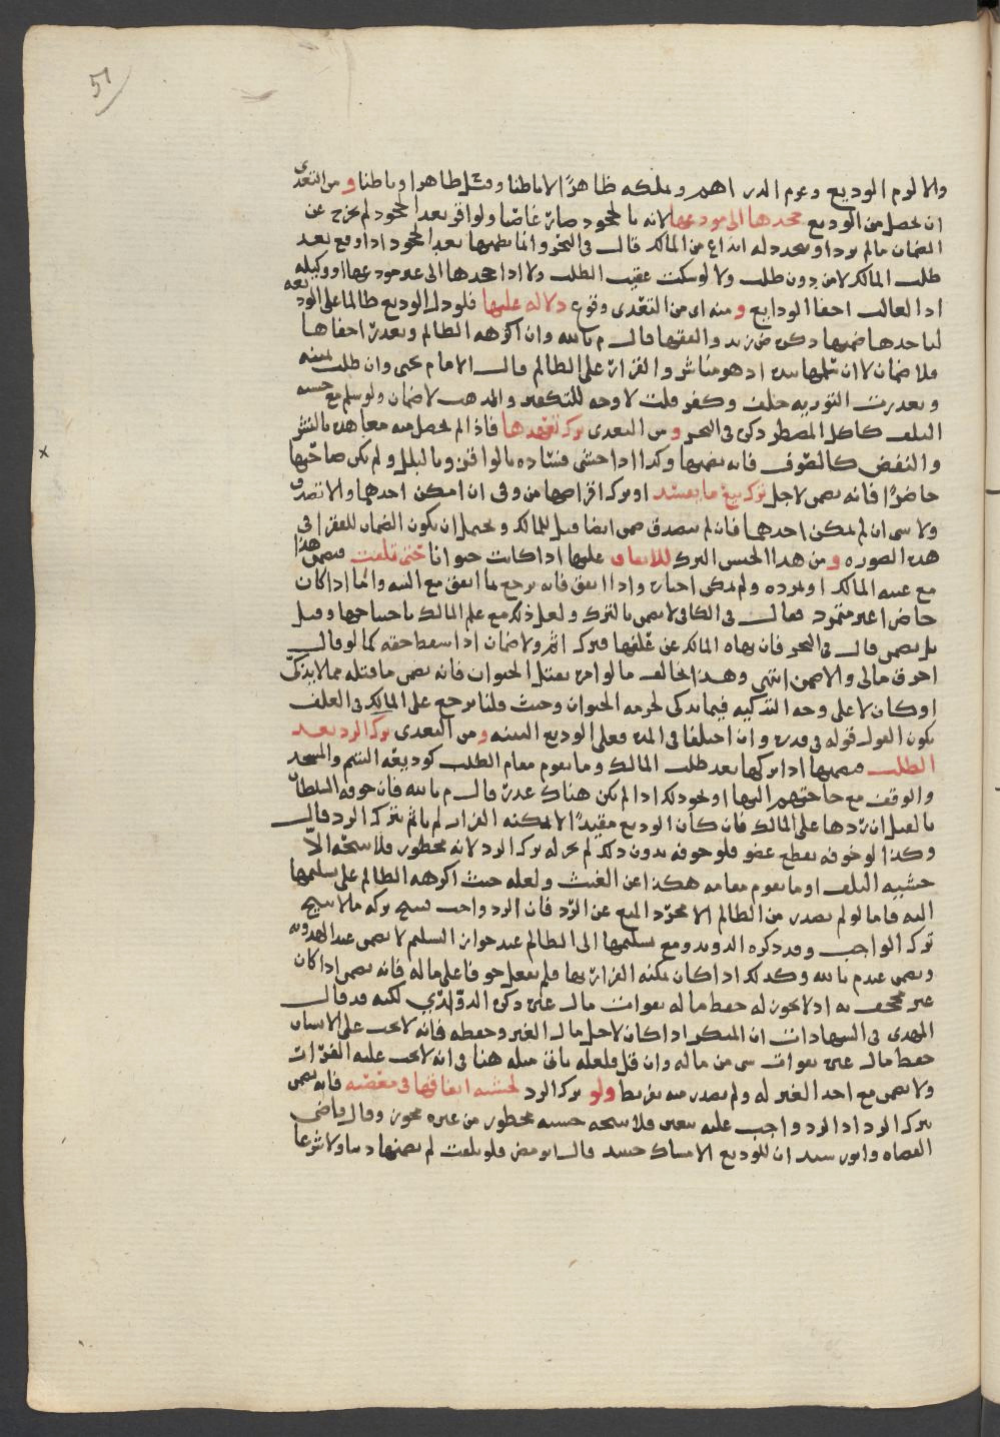 51
والا لزم الوديع وغرم الدراهم وملكه ظاهرا لا باطنا وقيل ظاهرا وباطنا ومن التعدي
ان يحصل من الوديع جحدها الى مودعها لانه بالجحود صار غاصبا ولو اقر بعد الجحود لم يخرج عن
الضمان مالم يرد او يتجدد له ايداع من المالك قال في البحر وانما يضمنها بعد الجحود اذا وقع بعد
طلب المالك لا من دون طلب ولا لو سكت عقيب الطلب ولا اذا جحدها الى غير مودعها او وكيله
اذ الغالب اخفا الودايع ومنه اي من التعدي وقوع دلاله عليها فلو دل الوديع ظالما على الوديعه
فاخذها ضمنها قال م بالله وان اكرهه الظالم وتعذر اخفاها
فلا ضمان لا ان سلمها بيده اذ هو مباشر والقرار على الظالم قال الامام يحيى وان طلب يمينه
وتعذرت التوريه حلف وكفر قلت لا وجه للتكفير والمذهب لا ضمان ولو سلم مع خشيه
التلف كاكل المضطر ذكره في البحر ومن التعدي ترك تعهدها فاذا لم يحصل منه تعاهده بالنشر
والنفض كالصوف فانه يضمنها وكذا اذا خشي فساده ولم يكن صاحبها
حاضرا فانه يضمن لاجل ترك بيع ما يفسد او ترك اقراضها من وفي ان امكن احدهما والا تصدق
ولا شي ان لم يمكن احدهما فان لم يتصدق ضمن ايضا قيل للمالك ويحتمل ان يكون الضمان للفقرا في
هذه الصوره ومن هذا الجنس الترك للانفاق عليها اذا كانت حيوانا حتى تلفت فيضمن هذا
مع غيبه المالك او تمرده ولم يمكن اجباره واذا انفق فانه يرجع بما انفق مع النيه واما اذا كان
حاضرا غير متمرد فقال في الكافي لا يضمن بالترك ولعل ذلك مع علم المالك باحتياجها وقيل
بل يضمن قال في البحر فان نهاه المالك عن علفها فترك اثم ولا ضمان اذا اسقط حقه كما لو قال
احرق مالي والا ضمن انتهى وهذا يخالف ما لو امر بقتل الحيوان فانه يضمن ما قتله مما لا يذكى
او كان لا على وجه التذكيه فيما يذكى لحرمه الحيوان وحيث قلنا يرجع على المالك في العلف
يكون القول قوله في قدره وان اختلفا في المده فعلى الوديع البينه ومن التعدي ترك الرد بعد
الطلب فيضمنها اذا تركها بعد طلب المالك وما يقوم مقام الطلب كوديعه اليتيم والمسجد
والوقف مع حاجتهم اليها او نحو ذلك اذا لم يكن هناك عذر قال م بالله فان خوفه السلطان
بالقتل ان ردها على المالك فان كان الوديع مقيدا لا يمكنه الفرار لم ياثم بترك الرد قال
وكذا لو خوفه بقطع عضو فلو خوفه بدون ذلك لم يجز له ترك الرد لانه محظور فلا يبيحه الا
خشيه التلف او ما يقوم مقامه هكذا عن الغيث ولعله حيث اكرهه الظالم على تسليمها
اليه فاما لو لم يصدر من الظالم الا مجرد المنع عن الرد فان الرد واجب فيبيح تركه ما يبيح
ترك الواجب وقد ذكره الدواري ومع تسليمها الى الظالم عند جواز التسليم لا يضمن عند الهدويه
ويضمن عند م بالله وكذلك اذا كان يمكنه الفرار بها فلم يفعل خوفا على ماله فانه يضمن اذا كان
غير مجحف به اذ لا يجوز له حفظ ماله بفوات مال غيره ذكره الدواري لكنه قد قال
المهدي في الشهادات ان المنكر اذا كان لاجل مال الغير وحفظه فانه لا يجب على الانسان
حفظ مال غيره بفوات شي من ماله وان قل فلعله ياتي مثله هنا في انه لا يجب عليه الفرار
ولا يضمن مع اخذ الغير له ولم يصدر منه تفريط ولو ترك الرد لخشيه انفاقها في معصيه فانه يضمن
بترك الرد اذ الرد واجب عليه معين فلا يبيحه خشيه محظور من غيره مجوز وقال قاضي
القضاه وابو رشيد ان للوديع الامساك حينئذ قال ابو مضر فلو تلفت لم يضمنها دينا ولا شرعا